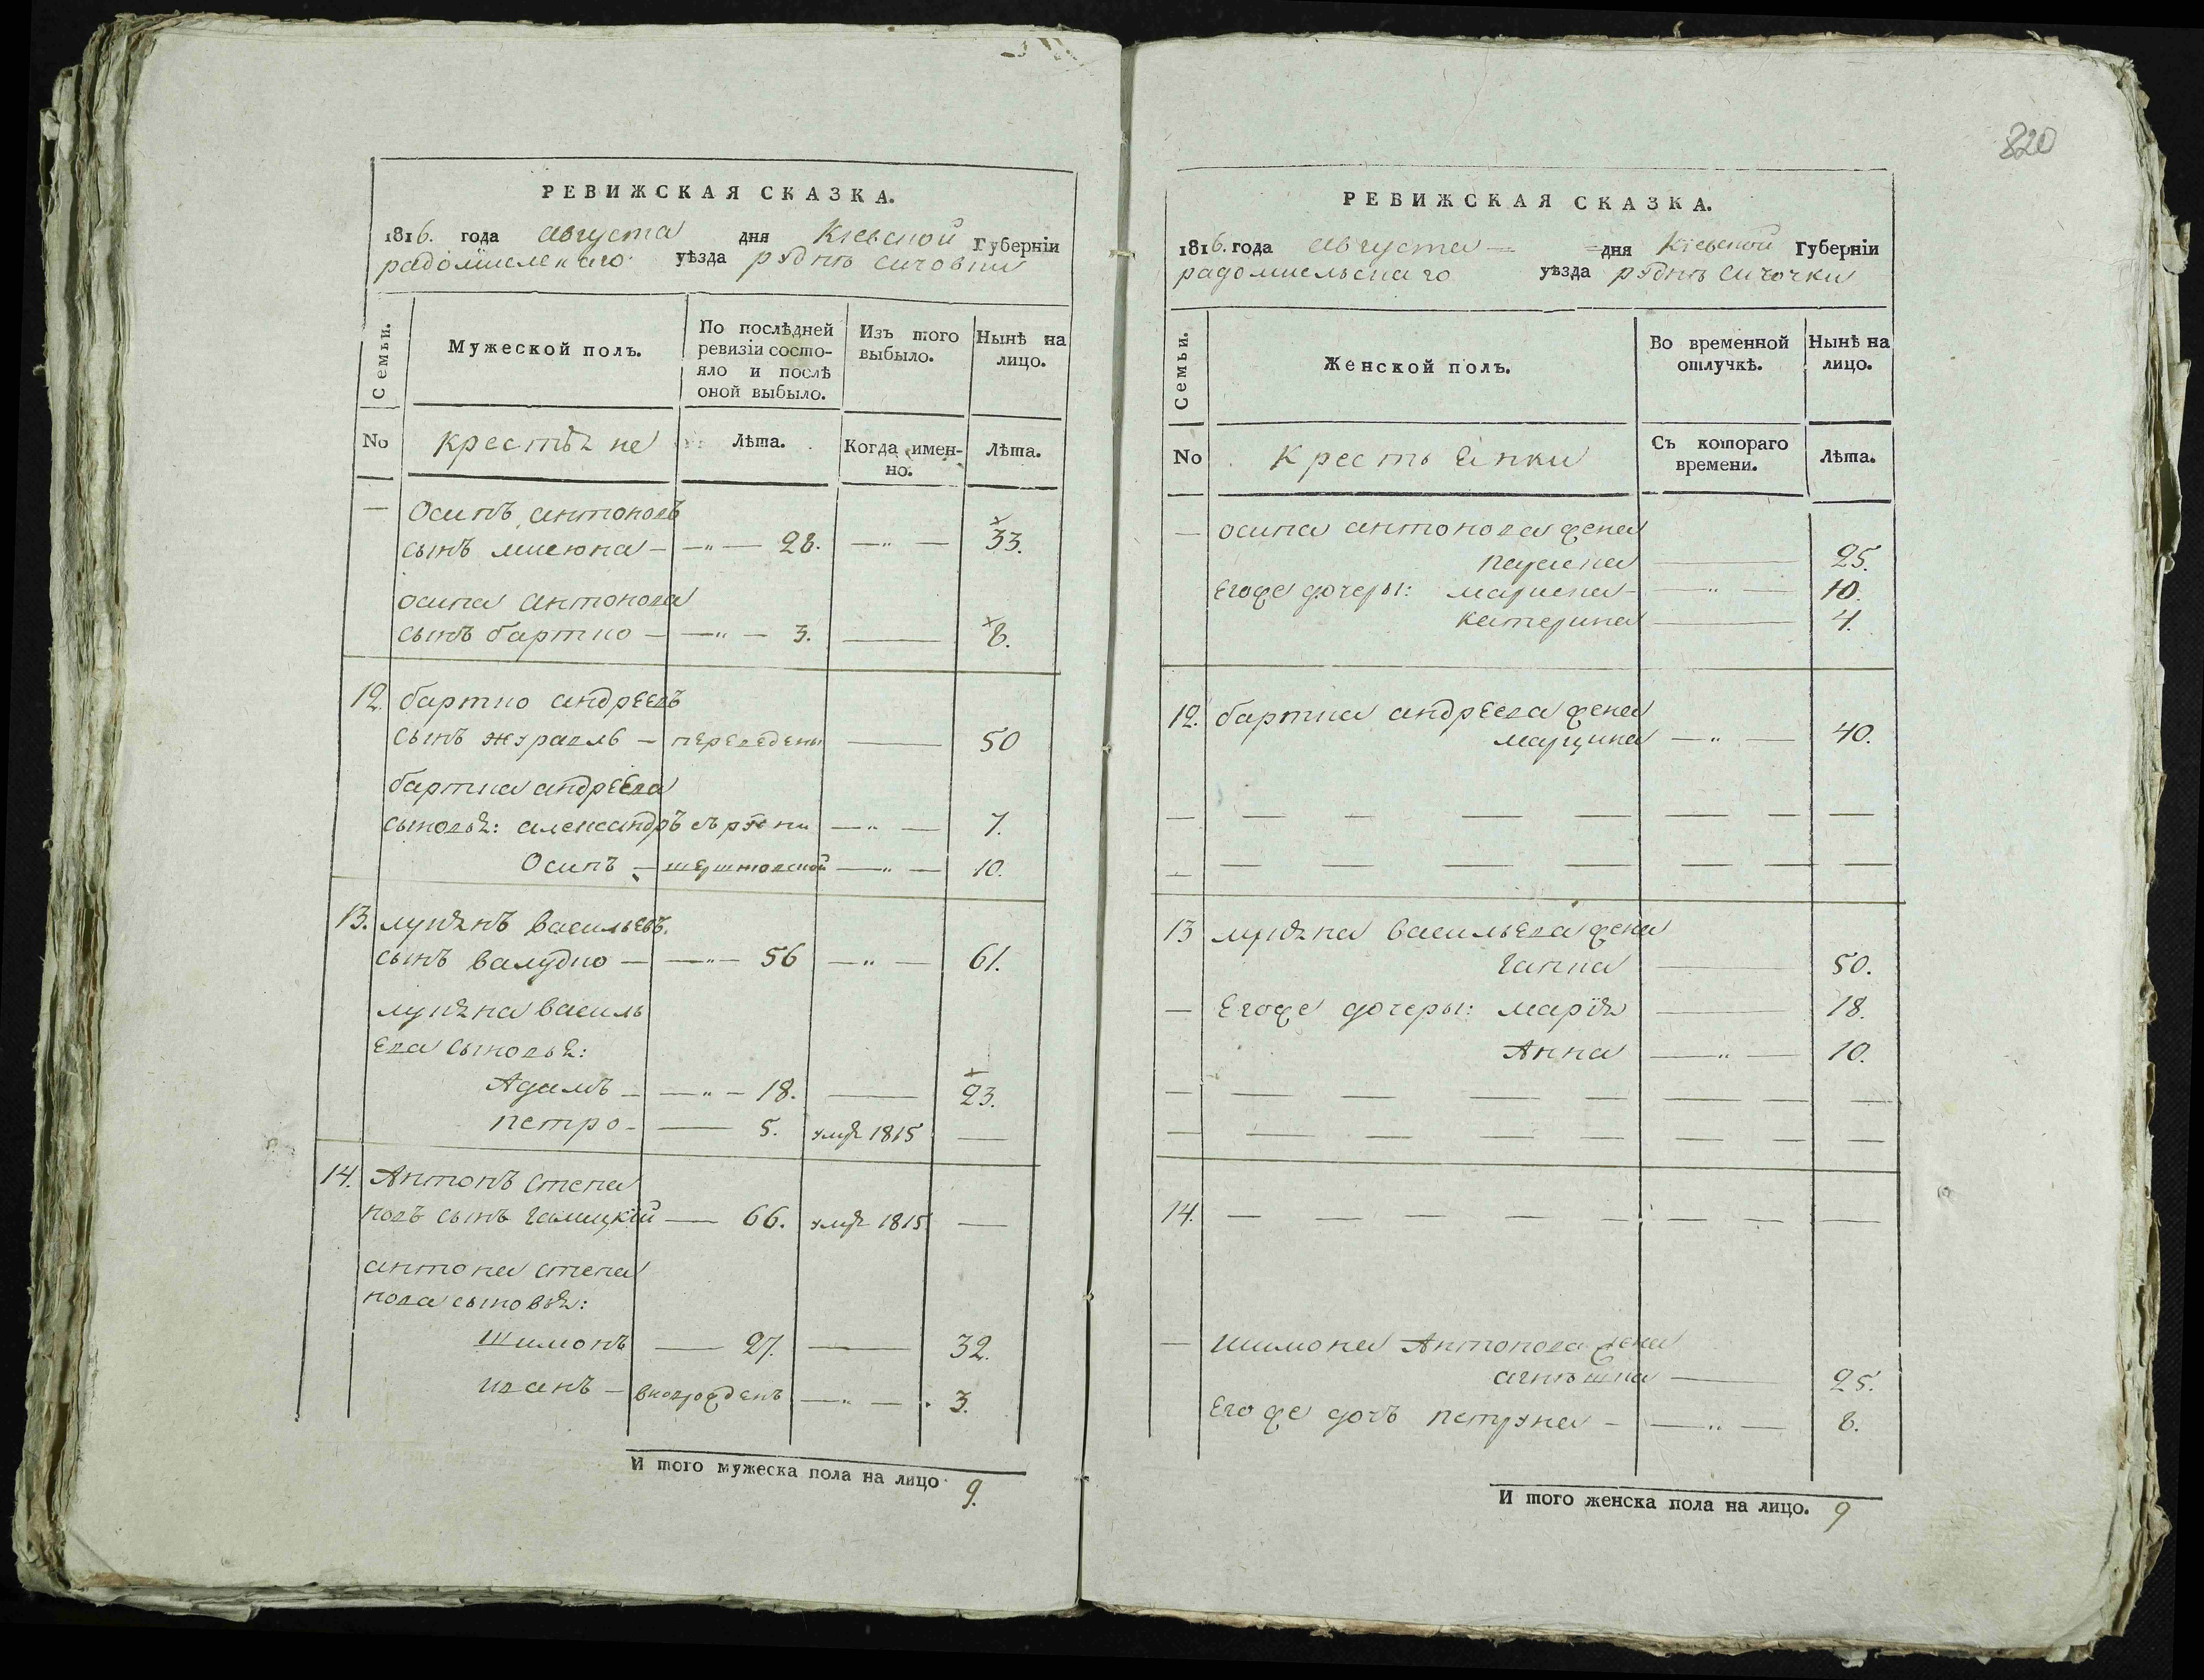 820
РЕВИЖСКАЯ СКАЗКА.
1816. года августа дня Кіевской Губерніи
радомысленаго уѣзда рудни
Семьи.
Мужеской полъ.
По послѣдней ревизіи состо-
яло и послѣ
оной выбыло.
Изъ того выбыло.
Нынѣ на лицо.
No
крестьяне
Лѣта.
Когда имен-
но.
Лѣта.
— Осипъ антоновъ
сынъ — „ — 28. — „ — 33.
осипа антонова
сынъ бартко — — „ — 3. — 8.
12. бартко андреевъ
сынъ журавль — переведены — 50
бартка андреева
сыновья: александръ съ рудни — „ — 7.
Осипъ — — „ — 10.
13. лукянъ васильевъ
сынъ валудко — — „ — 56 — „ — 61.
лукяна василь
ева сыновья:
Адамъ — — „ — 18. — 23.
петро — — 5. умре 1815 —
14. Антонъ степа
новъ сынъ галицкій — 66. умре 1815 —
антона степа
нова сыновья:
шимонъ — 27. — 32.
иванъ — вновърожденъ — „ — 3.
И того мужеска пола на лицо 9.
РЕВИЖСКАЯ СКАЗКА.
1816. года августа — дня Кіевской Губерніи
радомысльскаго уѣзда рудни сычовки
Семьи.
Женской полъ.
Во временной отлучкѣ.
Нынѣ на лицо.
No
Крестьянки
Съ котораго времени.
Лѣта.
— осипа антонова жена
— 25.
Егоже дочеры: марына — — „ — 10.
катерина — 4.
12. бартка андреева жена
марцина — „ — 40.
13 лукяна васильева жена
ганна — 50.
— Егоже дочеры: марія — 18.
Анна — „ — 10.
14. —
— шимона Антонова жена
агнѣшка — 25.
Его же дочъ петруна — — „ — 8.
И того женска пола на лицо. 9